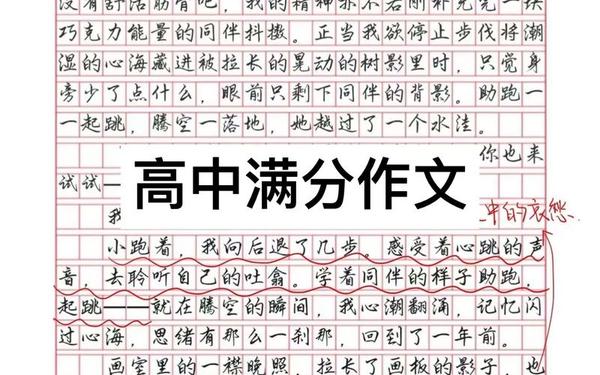 没有舒活筋骨吧，我的精神亦不若刚补充完一块
巧克力能量的同伴抖擞。正当我欲停止步伐将潮
湿的心海藏进被拉长的晃动的树影里时，只觉身
旁少了点什么，眼前只剩下同伴的背影。助跑一
一起跳，腾空一落地，她越过了一个水洼。
你也来
试试一
高中满分作文
我
中的哀愁
小跑着，我向后退了几步。感受着心跳的声
音，去聆听自己的吐翕。学着同伴的样子助跑，
起跳——就在腾空的瞬间，我心潮翻涌，记忆闪
过心海，思绪有那么一刹那，回到了一年前。
画室里的一襟晚照，拉长了画板的影子，也